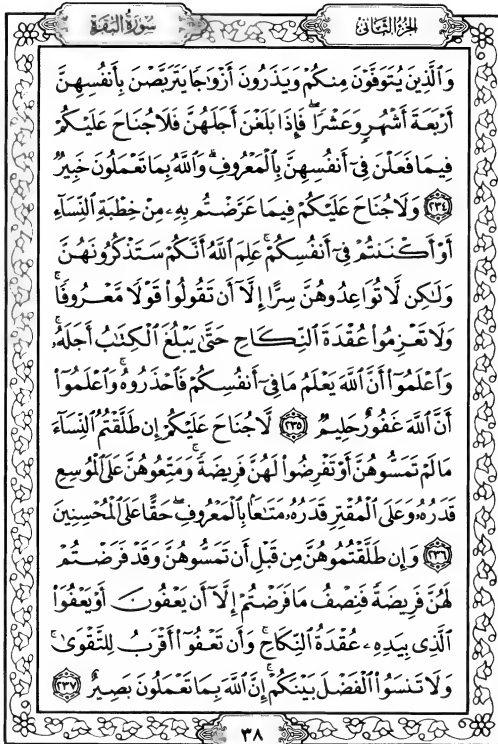 سُورَةُ البَقَرَةِ
الجُزءُ الثَّانِي
وَٱلَّذِينَ يُتَوَفَّوۡنَ مِنكُمۡ وَيَذَرُونَ أَزۡوَٰجٗا يَتَرَبَّصۡنَ بِأَنفُسِهِنَّ
أَرۡبَعَةَ أَشۡهُرٖ وَعَشۡرٗاۖ فَإِذَا بَلَغۡنَ أَجَلَهُنَّ فَلَا جُنَاحَ عَلَيۡكُمۡ
فِيمَا فَعَلۡنَ فِيٓ أَنفُسِهِنَّ بِٱلۡمَعۡرُوفِۗ وَٱللَّهُ بِمَا تَعۡمَلُونَ خَبِيرٞ
٢٣٤ وَلَا جُنَاحَ عَلَيۡكُمۡ فِيمَا عَرَّضۡتُم بِهِۦ مِنۡ خِطۡبَةِ ٱلنِّسَآءِ
أَوۡ أَكۡنَنتُمۡ فِيٓ أَنفُسِكُمۡۚ عَلِمَ ٱللَّهُ أَنَّكُمۡ سَتَذۡكُرُونَهُنَّ
وَلَٰكِن لَّا تُوَاعِدُوهُنَّ سِرًّا إِلَّآ أَن تَقُولُواْ قَوۡلٗا مَّعۡرُوفٗاۚ
وَلَا تَعۡزِمُواْ عُقۡدَةَ ٱلنِّكَاحِ حَتَّىٰ يَبۡلُغَ ٱلۡكِتَٰبُ أَجَلَهُۥۚ
وَٱعۡلَمُوٓاْ أَنَّ ٱللَّهَ يَعۡلَمُ مَا فِيٓ أَنفُسِكُمۡ فَٱحۡذَرُوهُۚ وَٱعۡلَمُوٓاْ
أَنَّ ٱللَّهَ غَفُورٌ حَلِيمٞ ٢٣٥ لَّا جُنَاحَ عَلَيۡكُمۡ إِن طَلَّقۡتُمُ ٱلنِّسَآءَ
مَا لَمۡ تَمَسُّوهُنَّ أَوۡ تَفۡرِضُواْ لَهُنَّ فَرِيضَةٗۚ وَمَتِّعُوهُنَّ عَلَى ٱلۡمُوسِعِ
قَدَرُهُۥ وَعَلَى ٱلۡمُقۡتِرِ قَدَرُهُۥ مَتَٰعَۢا بِٱلۡمَعۡرُوفِۖ حَقًّا عَلَى ٱلۡمُحۡسِنِينَ
٢٣٦ وَإِن طَلَّقۡتُمُوهُنَّ مِن قَبۡلِ أَن تَمَسُّوهُنَّ وَقَدۡ فَرَضۡتُمۡ
لَهُنَّ فَرِيضَةٗ فَنِصۡفُ مَا فَرَضۡتُمۡ إِلَّآ أَن يَعۡفُونَ أَوۡ يَعۡفُوَاْ
ٱلَّذِي بِيَدِهِۦ عُقۡدَةُ ٱلنِّكَاحِۚ وَأَن تَعۡفُوٓاْ أَقۡرَبُ لِلتَّقۡوَىٰۚ
وَلَا تَنسَوُاْ ٱلۡفَضۡلَ بَيۡنَكُمۡۚ إِنَّ ٱللَّهَ بِمَا تَعۡمَلُونَ بَصِيرٌ ٢٣٧
٣٨